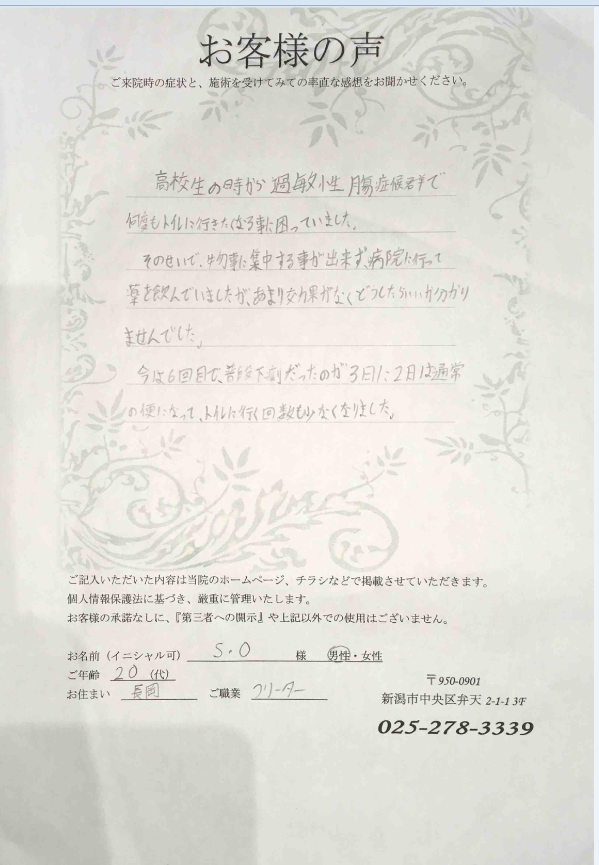 お客様の声
ご来院時の症状と、施術を受けてみての率直な感想をお聞かせください。
高校生の時から過敏性腸症候群で
何度もトイレに行きたくなる事に困っていました。
そのせいで、物事に集中する事が出来ず、病院に行って
薬を飲んでいましたが、あまり効果がなくどうしたらいいか分かり
ませんでした。
今は6回目で、普段下痢だったのが3日に2日は通常
の便になって、トイレに行く回数も少なくなりました。
ご記入いただいた内容は当院のホームページ、チラシなどで掲載させていただきます。
個人情報保護法に基づき、厳重に管理いたします。
お客様の承諾なしに、『第三者への開示』や上記以外での使用はございません。
お名前（イニシャル可） S.O 様 男性・女性
ご年齢 20（代）
お住まい 長岡 ご職業 フリーター
〒950-0901
新潟市中央区弁天 2-1-1 3F
025-278-3339